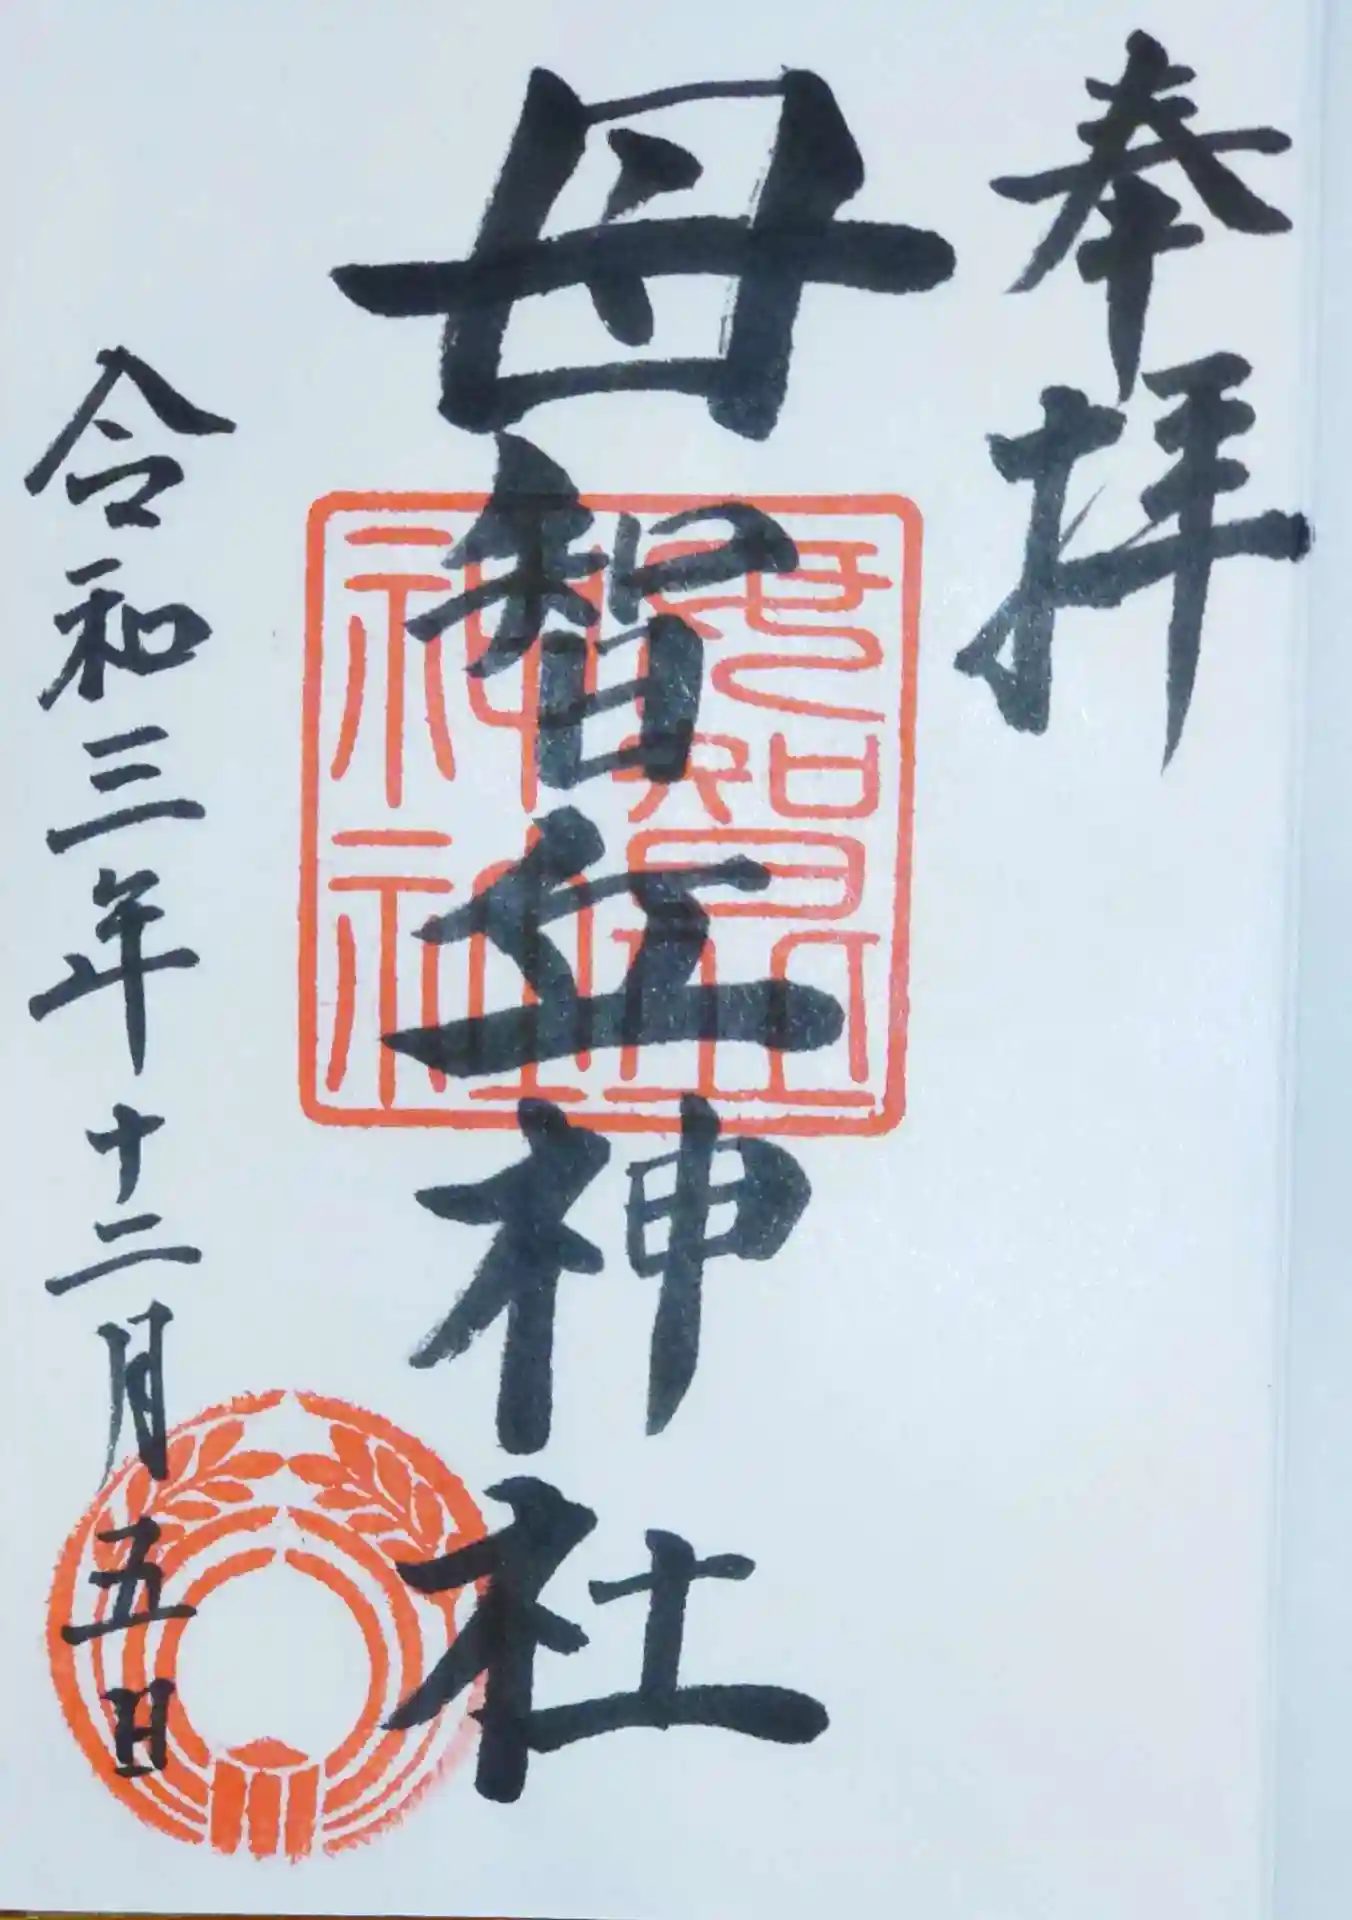 奉拝
母智丘神社
令和三年十二月五日
母智丘
神社